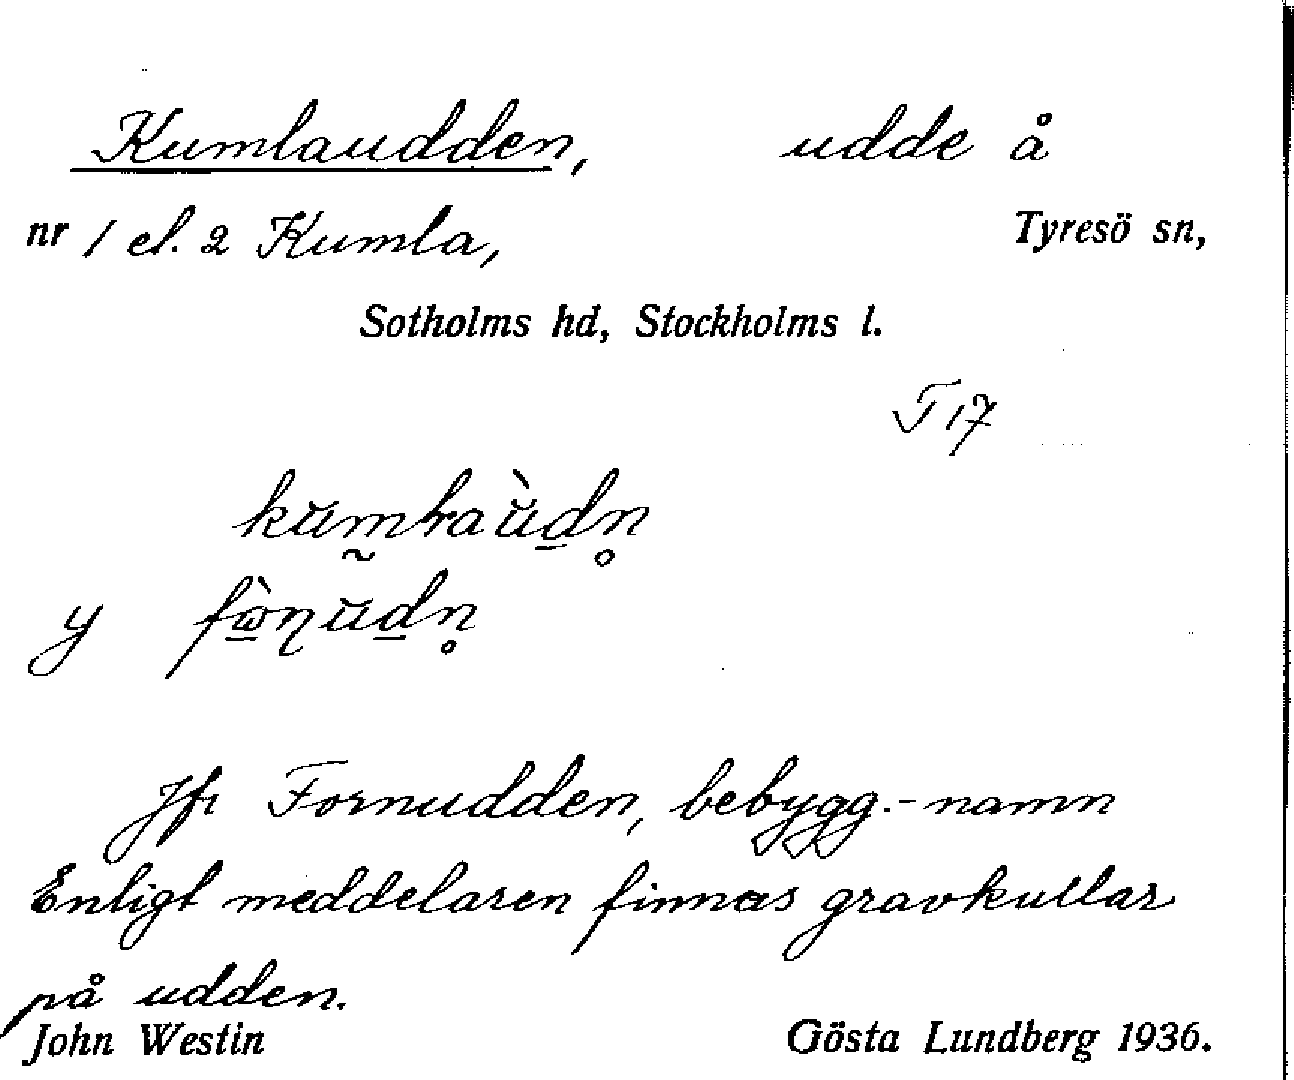 Kumlaudden, udde å
nr 1 el. 2 Kumla, Tyresö sn,
Sotholms hd, Stockholms l.
T 17
y
Jfr Fornudden, bebygg.-namn
Enligt meddelaren finnas gravkullar
på udden.
John Westin Gösta Lundberg 1936.